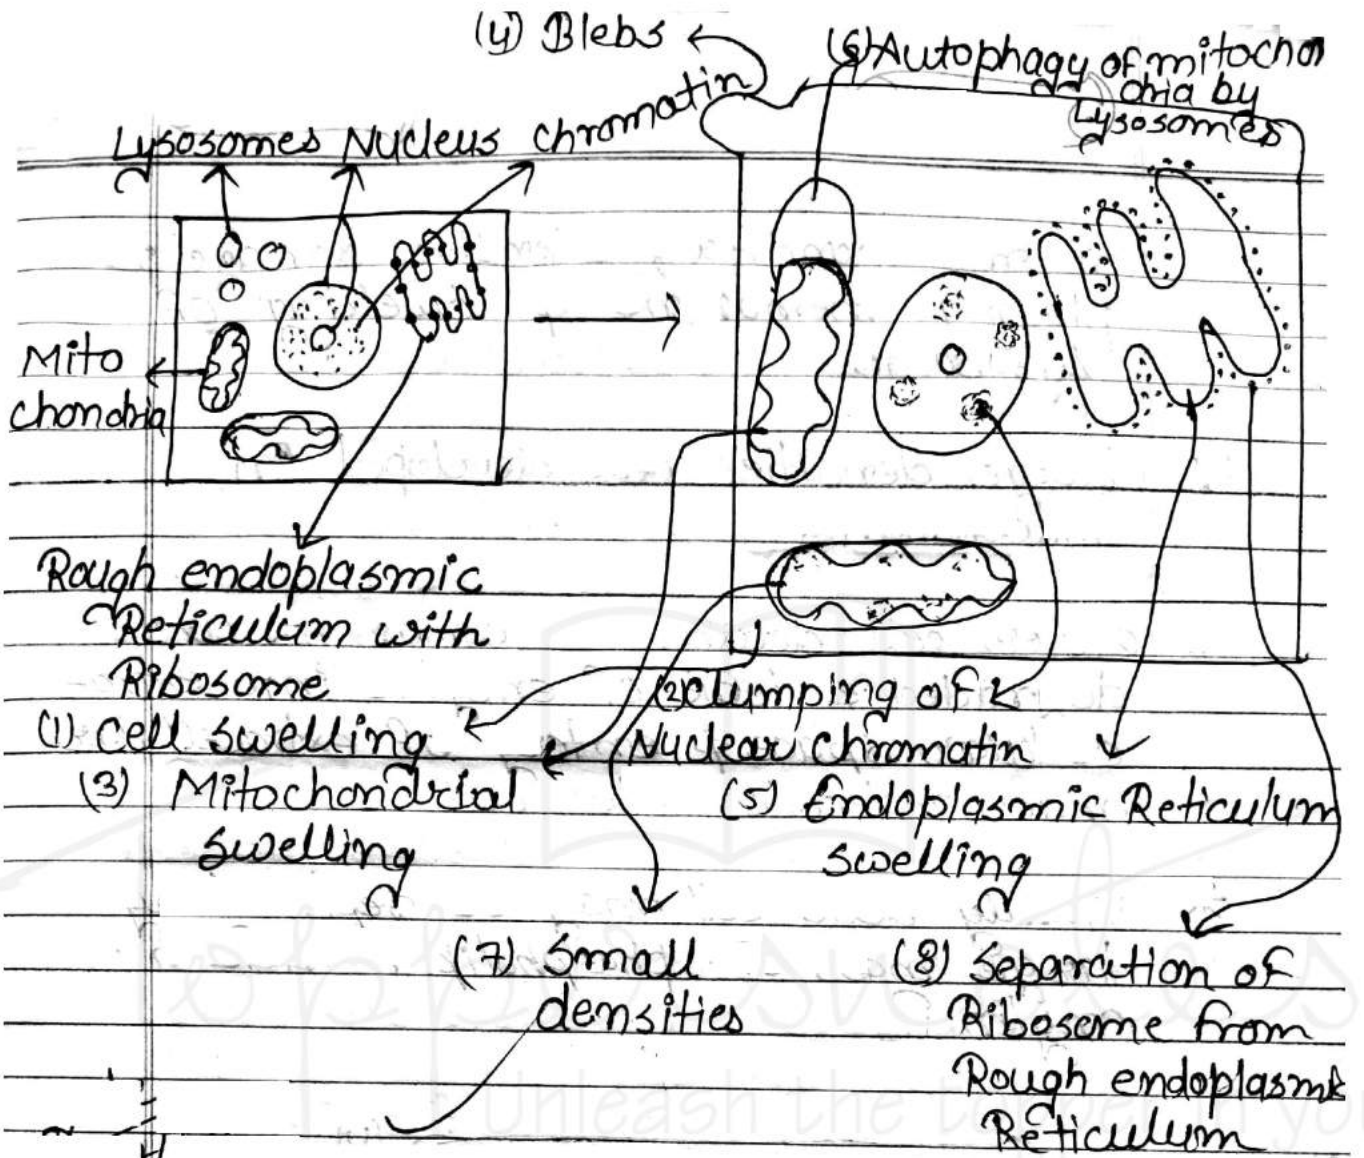 (4) Blebs
(6) Autophagy of mitochon
dria by
Lysosomes
Lysosomes Nucleus chromatin
Mito
chondria
Rough endoplasmic
Reticulum with
Ribosome
(1) Cell swelling
(2) Clumping of
Nuclear chromatin
(3) Mitochondrial
swelling
(5) Endoplasmic Reticulum
swelling
(7) Small
densities
(8) Separation of
Ribosome from
Rough endoplasmic
Reticulum
Unleash the topper in yo